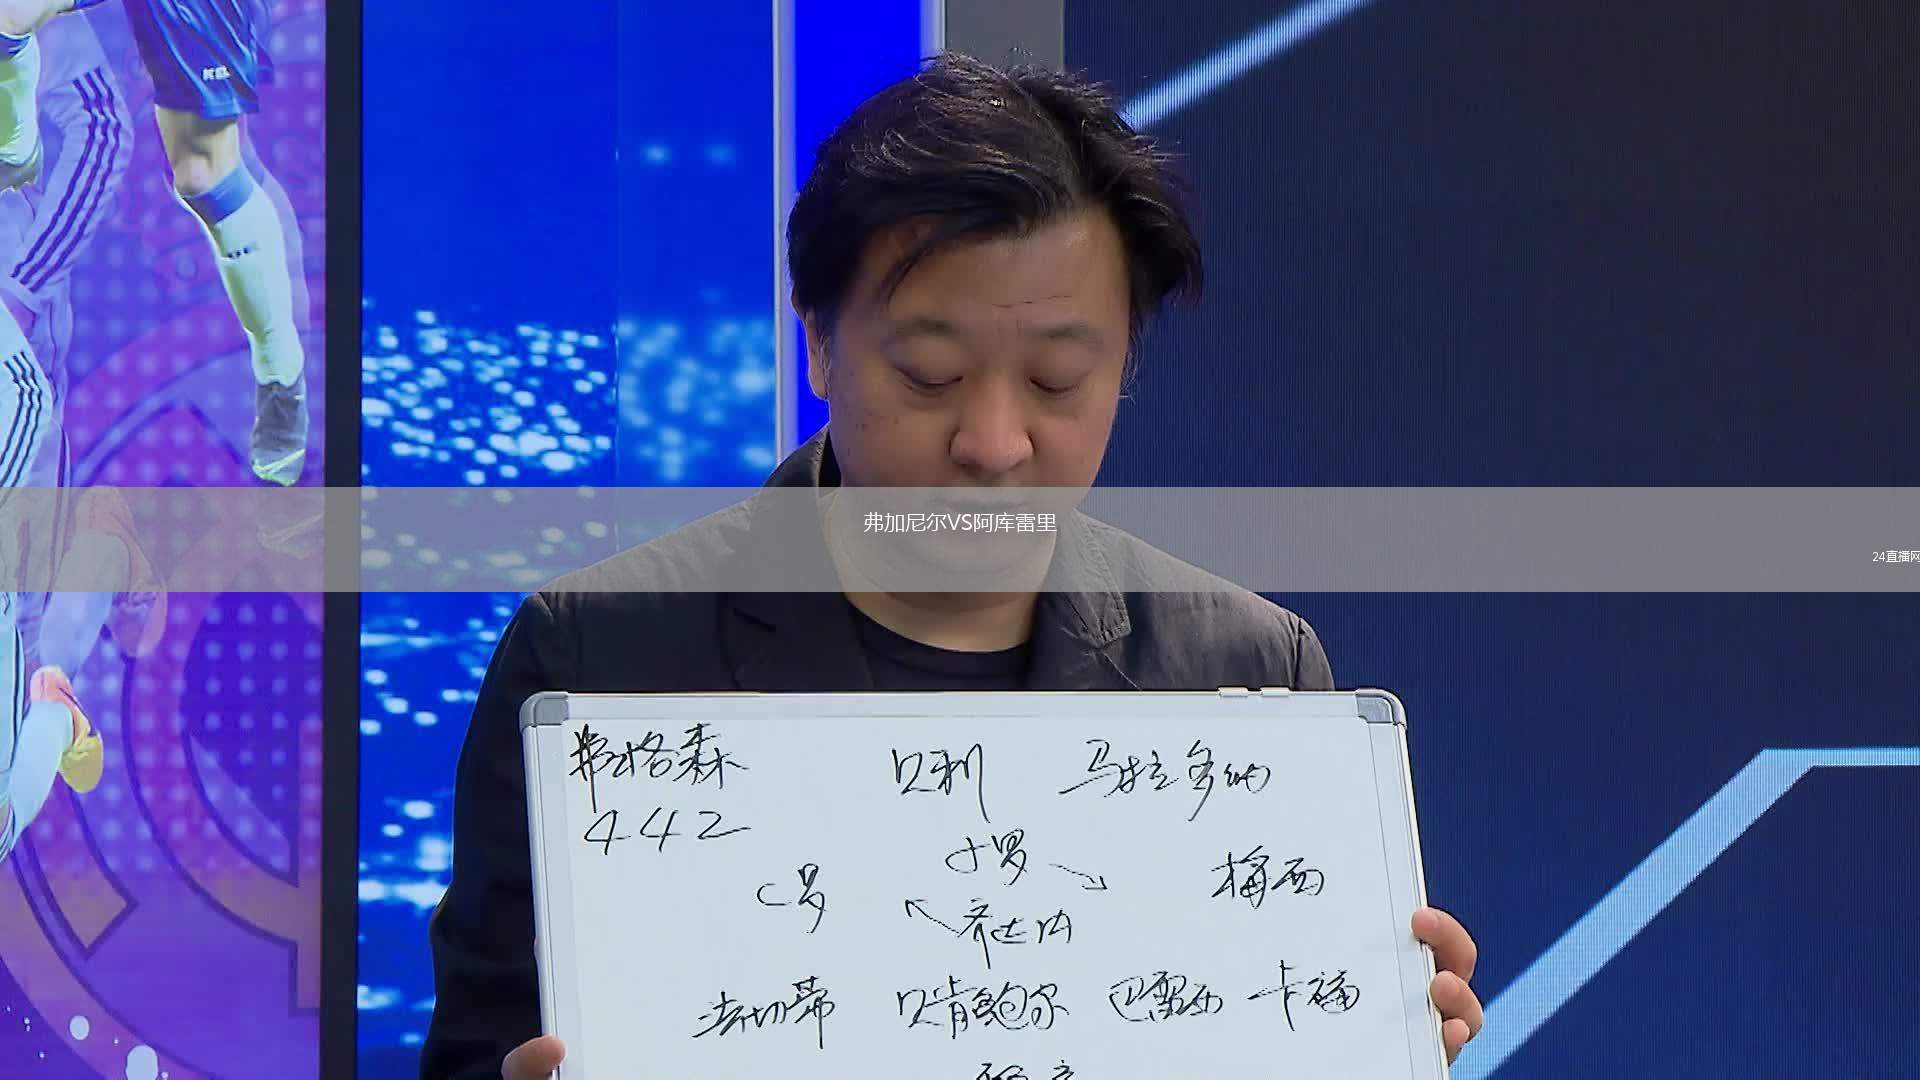 弗加尼尔VS阿库雷里
24直播网
弗格森 贝利 马拉多纳
442
小罗
C罗 梅西
齐达内
法切蒂 贝肯鲍尔 巴雷西 卡福